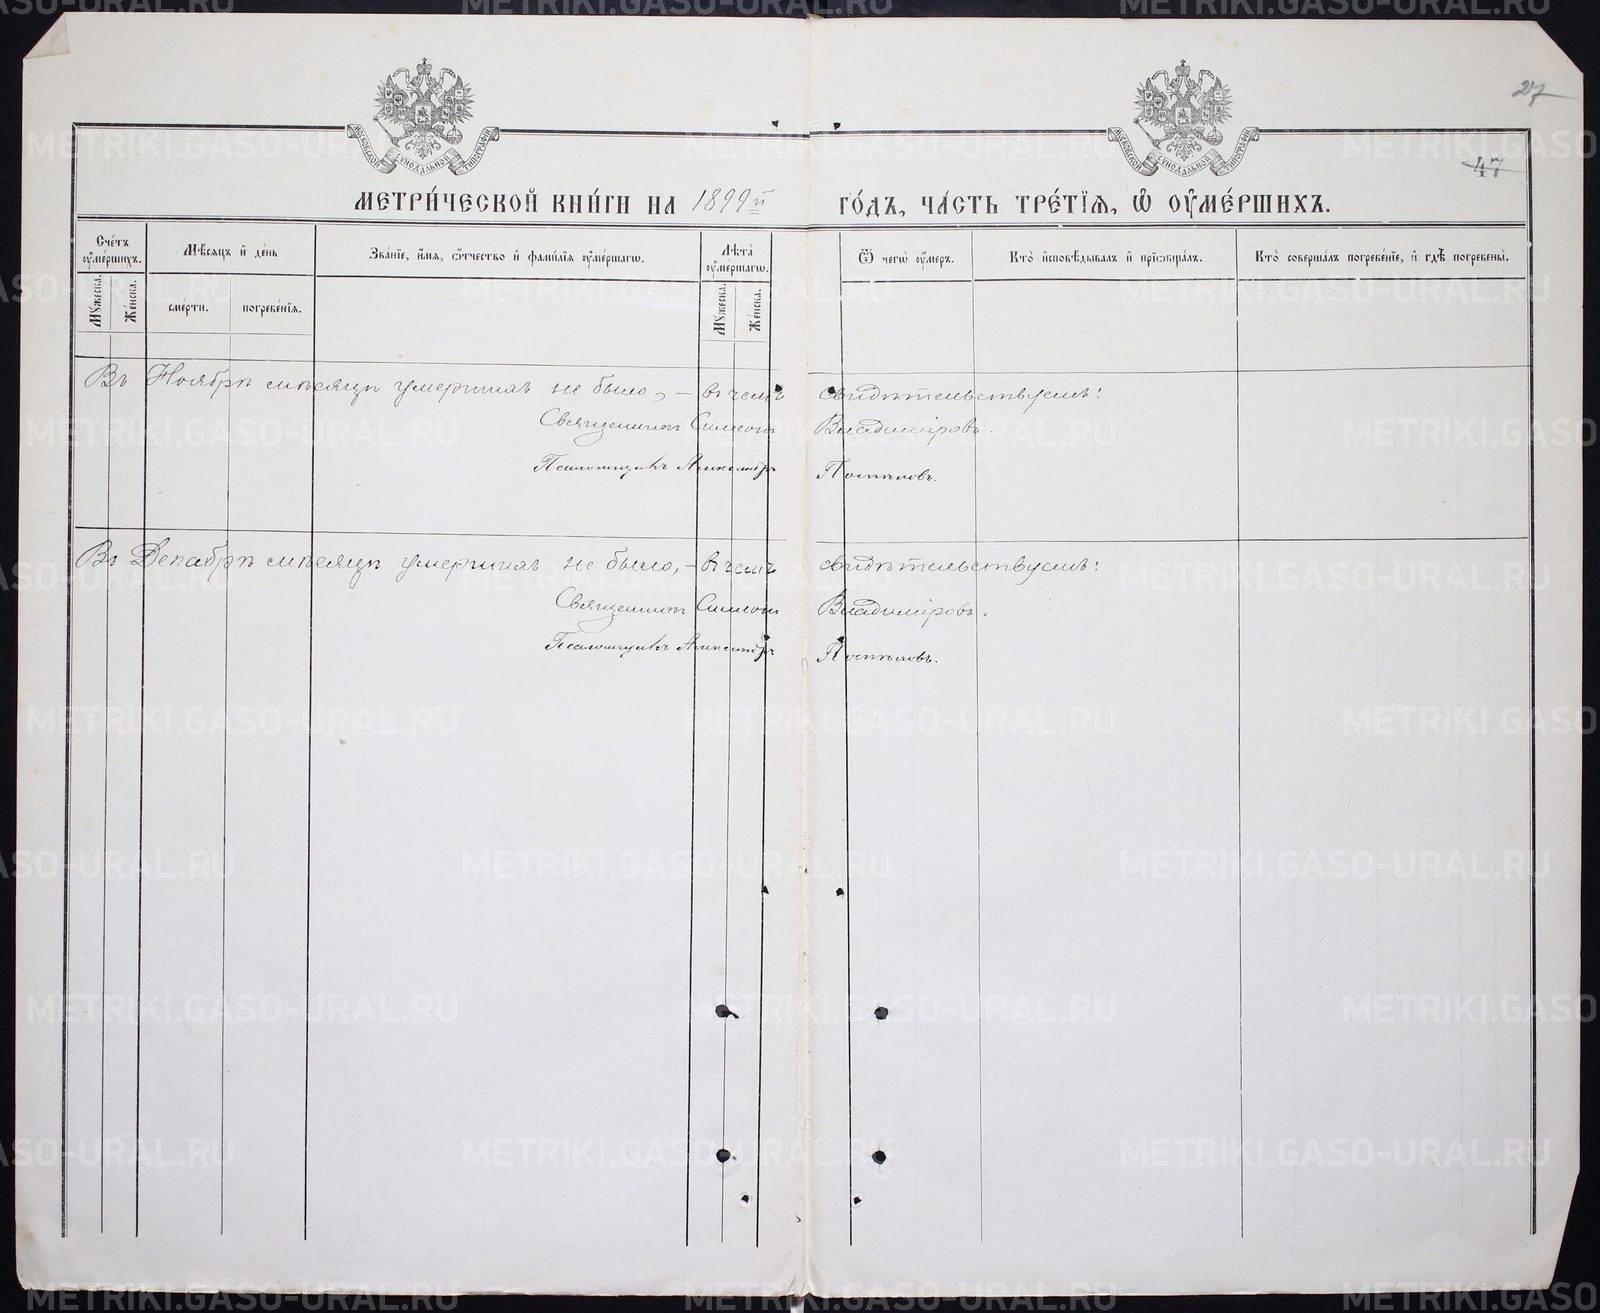 27
47
МОСКОВСКОЙ СѴНОДАЛЬНОЙ ТИПОГРАФІИ
МОСКОВСКОЙ СѴНОДАЛЬНОЙ ТИПОГРАФІИ
МЕТРИ́ЧЕСКОЙ КНИ́ГИ НА 1899й ГО́ДЪ, ЧА́СТЬ ТРЕ́ТІѦ, Ѡ҆ ОУ҆МЕ́РШИХЪ.
Сче́тъ оу҆ме́ршихъ.
Мꙋ́жеска.
Же́нска.
Мѣ́сяцъ и҆ де́нь
сме́рти.
погребе́нїѧ.
Зва́нїе, и҆́мѧ, ѻ҆́тчество и҆ фами́лїѧ оу҆ме́ршагѡ.
Лѣ̑та оу҆ме́ршагѡ.
Мꙋ́жеска.
Же́нска.
Ѿ чегѡ̀ оу҆́меръ.
Кто̀ и҆сповѣ́дывалъ и҆ прїѡбща́лъ.
Кто̀ соверша́лъ погребе́нїе, и҆ гдѣ̀ погребены̀.
Въ Ноябрѣ мѣсяцѣ умершихъ не было, – въ чемъ свидѣтельствуемъ:
Священникъ Симеонъ Владиміровъ.
Псаломщикъ Александръ Поспѣловъ.
Въ Декабрѣ мѣсяцѣ умершихъ не было, – въ чемъ свидѣтельствуемъ:
Священникъ Симеонъ Владиміровъ.
Псаломщикъ Александръ Поспѣловъ.
METRIKI.GASO-URAL.RU